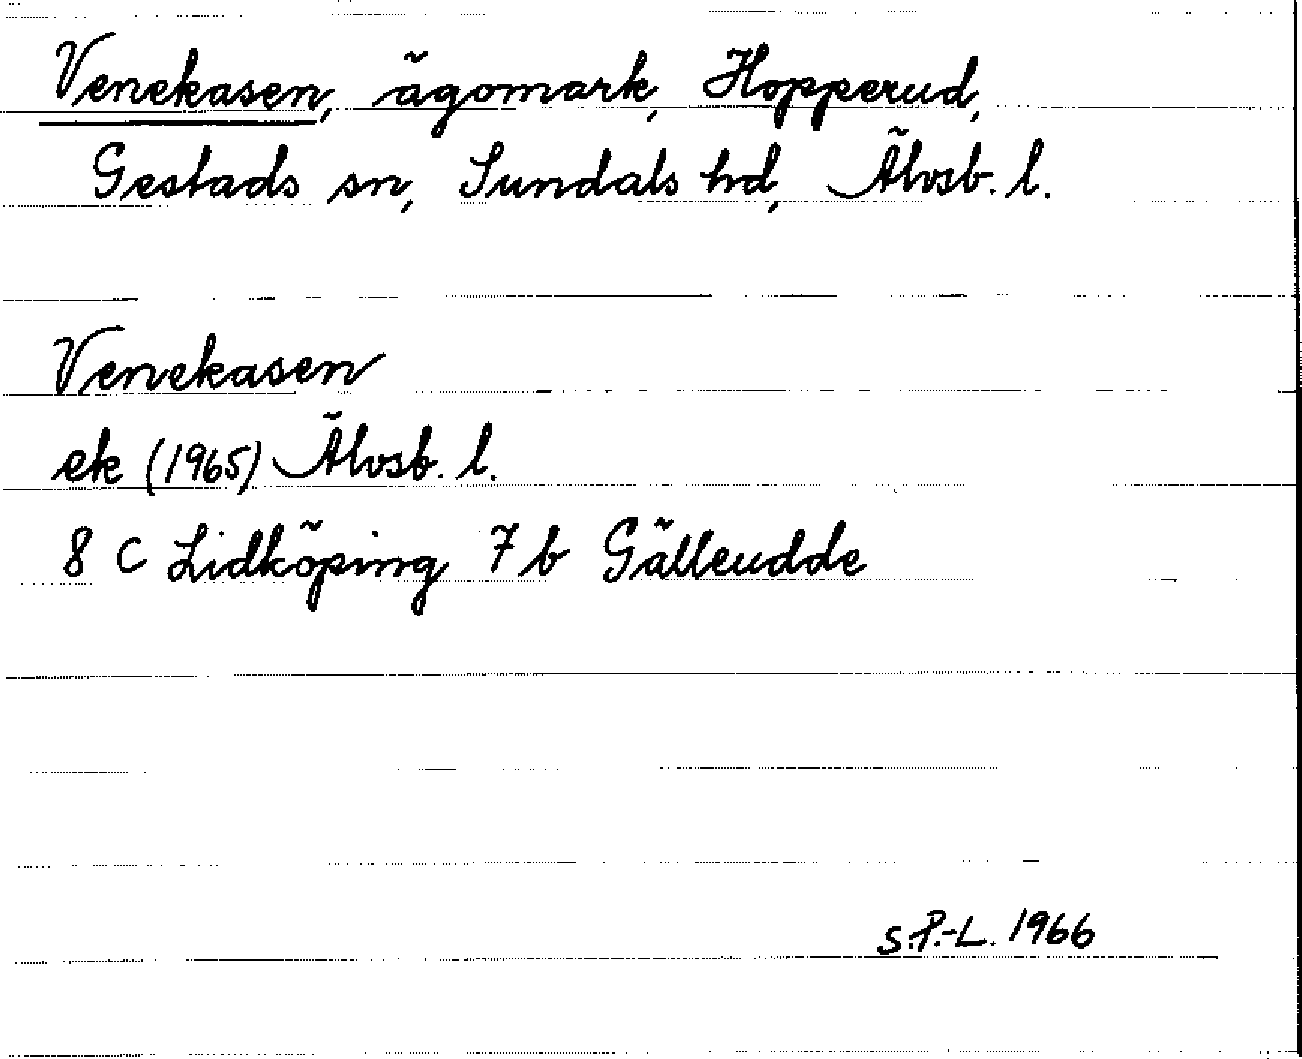 Venekasen, ägomark, Hopperud,
Gestads sn, Sundals hd, Älvsb. l.
Venekasen
ek (1965) Älvsb. l.
8 C Lidköping 7 b Gälleudde
S.P.-L. 1966